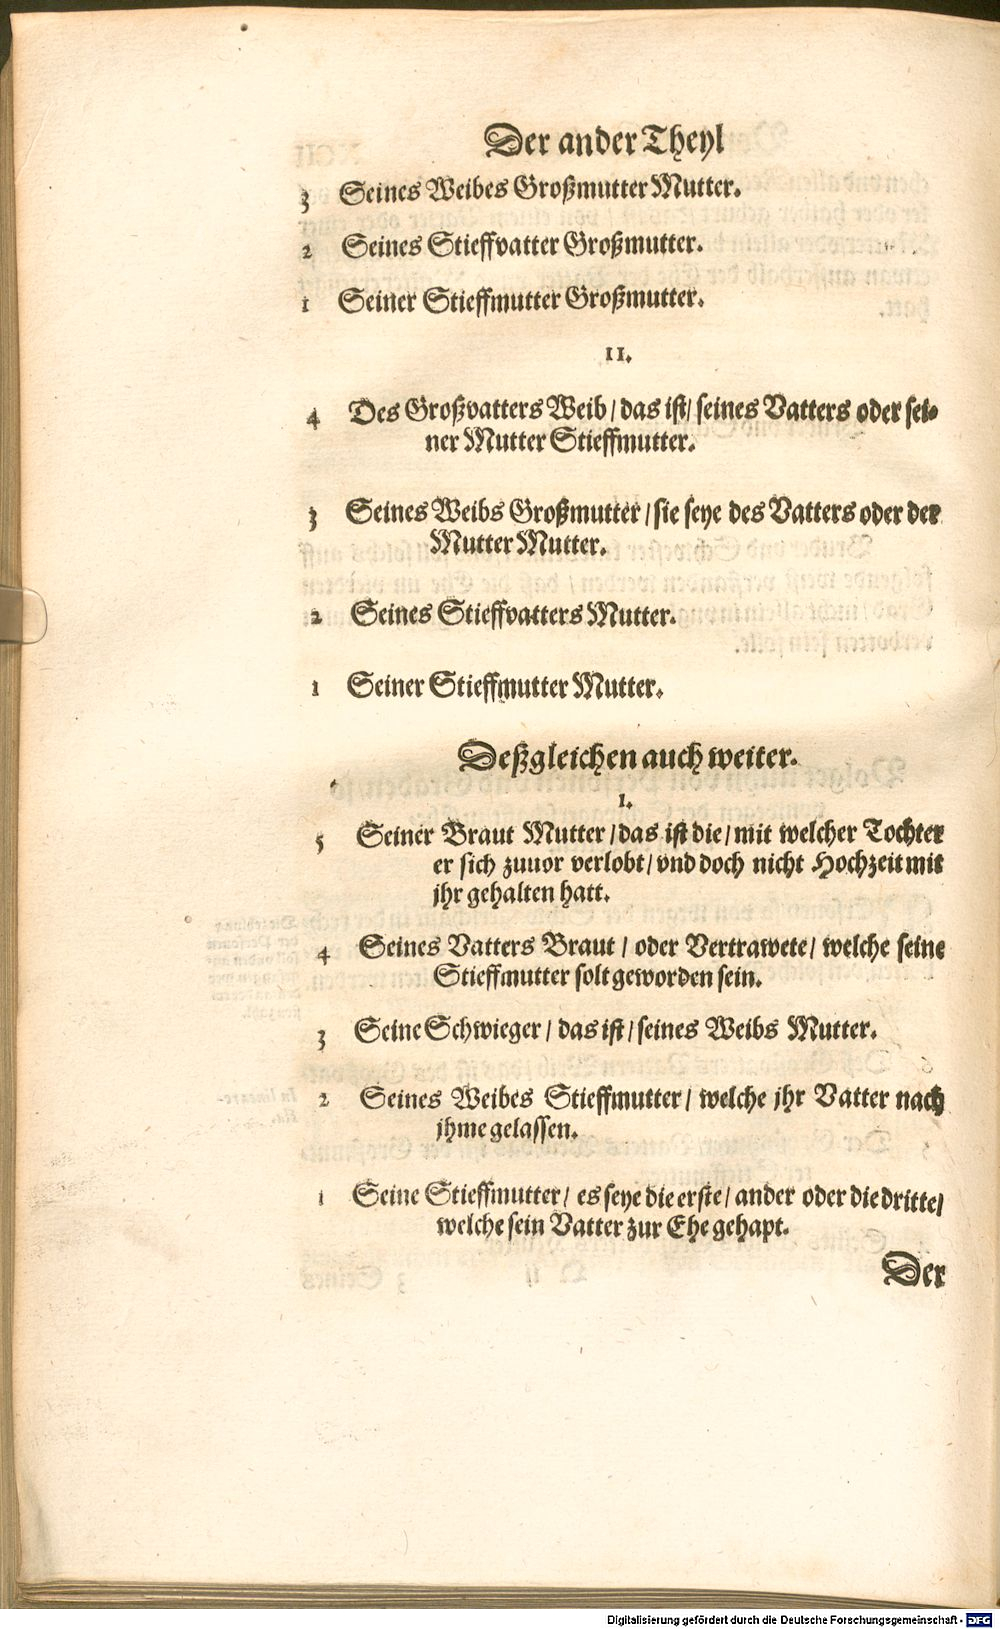 Der ander Theyl
3 Seines Weibes Großmutter Mutter.
2 Seines Stieffvatter Großmutter.
1 Seiner Stieffmutter Großmutter.
II.
4 Des Großvatters Weib / das ist / seines Vatters oder sei-
ner Mutter Stieffmutter.
3 Seines Weibs Großmutter / sie seye des Vatters oder der
Mutter Mutter.
2 Seines Stieffvatters Mutter.
1 Seiner Stieffmutter Mutter.
Deßgleichen auch weiter.
I.
5 Seiner Braut Mutter / das ist die / mit welcher Tochter
er sich zuuor verlobt / vnd doch nicht Hochzeit mit
jhr gehalten hatt.
4 Seines Vatters Braut / oder Vertrawete / welche seine
Stieffmutter solt geworden sein.
3 Seine Schwieger / das ist / seines Weibs Mutter.
2 Seines Weibes Stieffmutter / welche jhr Vatter nach
jhme gelassen.
1 Seine Stieffmutter / es seye die erste / ander oder die dritte /
welche sein Vatter zur Ehe gehapt.
Der
Digitalisierung gefördert durch die Deutsche Forschungsgemeinschaft - DFG